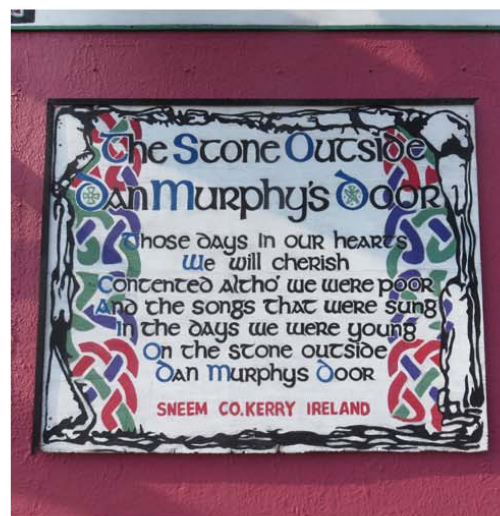 The Stone Outside
Dan Murphy's Door
Those days in our hearts
We will cherish
Contented altho' we were poor
And the songs that were sung
In the days we were young
On the stone outside
Dan Murphys Door
SNEEM CO.KERRY IRELAND